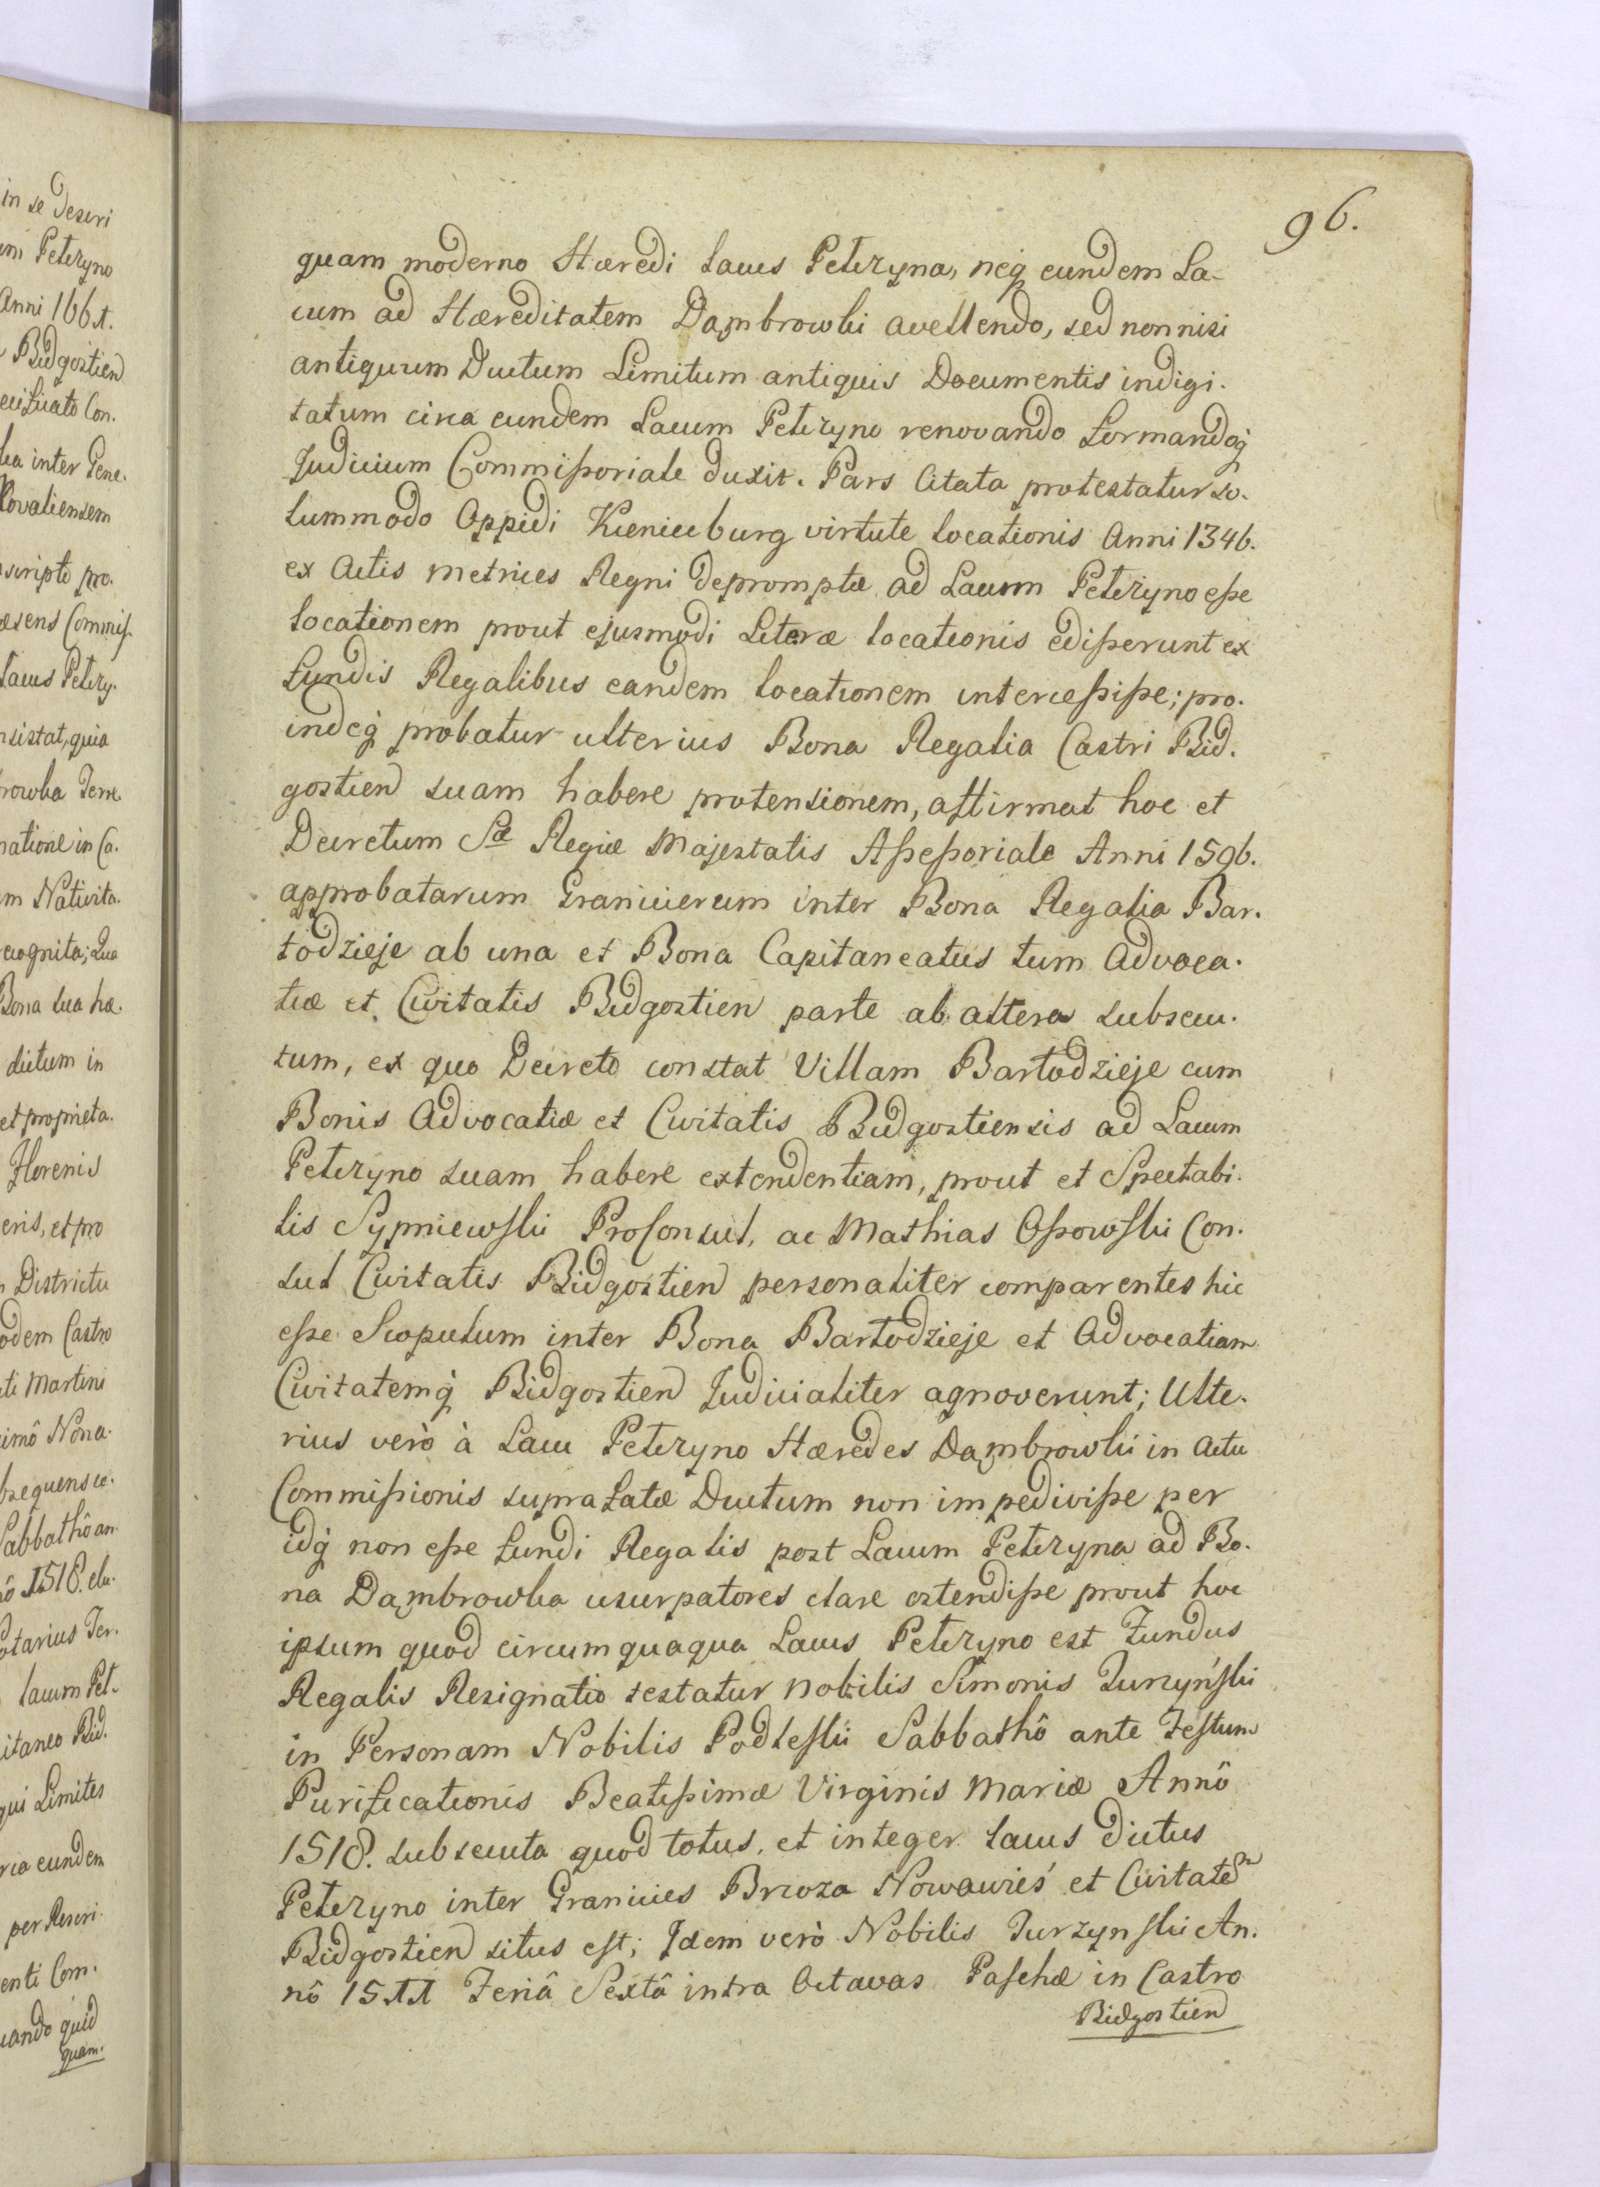 in se deseri
em Peterzyno
Anni 1661.
Bidgostien
ecificato Con.
ka inter Gene.
Kovaliensem
scripto pro.
æsens Commiſ.
Lacus Peterzy.
nsistat, quia
rowka Terræ
natione in Ca.
m Nativita.
cognita; Quæ
Bona sua hæ.
dictum in
et proprieta.
Florenis
eris, et pro
n Districtu
odem Castro
cti Martini
imô Nona.
bsequens co.
Sabbathô an
ô 1518. ela.
otarius Ter.
lacum Pet.
itaneo Bid.
qui Limites
rca eundem
per Reseri.
enti Com.
uando quid
quam.
96.
quam moderno Hæredi lacus Peterzyna, neq eundem La-
cum ad Hæreditatem Dambrowki avellendo, sed nonnisi
antiquum Ductum Limitum antiquis Documentis indigi.
tatum circa eundem Lacum Peterzyno renovando formandoq
Judicium Commiſsoriale duxit. Pars Citata protestatur so.
lummodo Oppidi Kieniecburg virtute locationis Anni 1346.
ex Actis metrices Regni depromptæ ad Lacum Peterzyno eſse
locationem prout ejusmodi Literæ locationis ediſserunt ex
fundis Regalibus eandem locationem interceſsiſse; pro.
indeq probatur ulterius Bona Regalia Castri Bid.
gostien suam habere protensionem, affirmat hoc et
Decretum Sæ Regiæ Majestatis Aſseſsoriale Anni 1596.
approbatarum Granicierum inter Bona Regalia Bar.
todzieje ab una et Bona Capitaneatus tum Advoca.
tiæ et Civitatis Bidgostien parte ab altera subsecu.
tum, ex quo Decreto constat Villam Bartodzieje cum
Bonis Advocatiæ et Civitatis Bidgostiensis ad Lacum
Peterzyno suam habere extendentiam, prout et Spectabi.
lis Sypniewſki ProConsul, ac Mathias Oſsowſki Con.
sul Civitatis Bidgostien personaliter comparentes hic
eſse Scopulum inter Bona Bartodzieje et Advocatiam
Civitatemq Bidgostien Judicialiter agnoverunt; Ulte.
rius verò à Lacu Peterzyno Hæredes Dambrowki in Actu
Commiſsionis supra latæ Ductum non impediviſse per
idq non eſse fundi Regalis post Lacum Peterzyna ad Bo.
na Dambrowka usurpatores clare ostendiſse prout hoc
ipsum quod circumquaqua Lacus Peterzyno est Fundus
Regalis Resignatio testatur Nobilis Simonis Turzyńſki
in Personam Nobilis Podleſki Sabbathô ante Feſtum
Purificationis Beatiſsimæ Virginis Mariæ Annô
1518. subsecuta quod totus, et integer lacus dictus
Peterzyno inter Granicies Brzoza Nowawieś et Civitatem
Bidgostien situs eſt; Idem verò Nobilis Turzynſki An.
nô 1511 Feriâ Sextâ intra Octavas Paſchæ in Castro
Bidgostien